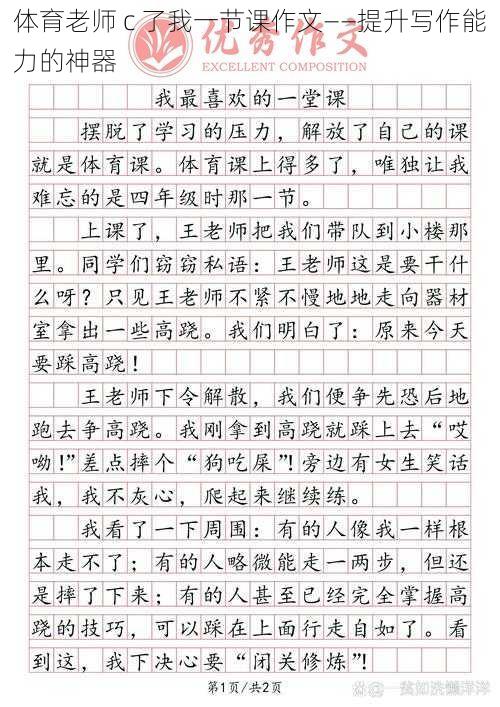 体育老师 c 了我一节课作文——提升写作能
力的神器
优秀作文
EXCELLENT COMPOSITION
我最喜欢的一堂课
摆脱了学习的压力，解放了自己的课
就是体育课。体育课上得多了，唯独让我
难忘的是四年级时那一节。
上课了，王老师把我们带队到小楼那
里。同学们窃窃私语：王老师这是要干什
么呀？只见王老师不紧不慢地地走向器材
室拿出一些高跷。我们明白了：原来今天
要踩高跷！
王老师下令解散，我们便争先恐后地
跑去争高跷。我刚拿到高跷就踩上去“哎
呦！”差点摔个“狗吃屎”！旁边有女生笑话
我，我不灰心，爬起来继续练。
我看了一下周围：有的人像我一样根
本走不了；有的人略微能走一两步，但还
是摔了下来；有的人甚至已经完全掌握高
跷的技巧，可以踩在上面行走自如了。看
到这，我下决心要“闭关修炼”！
第1页/共2页